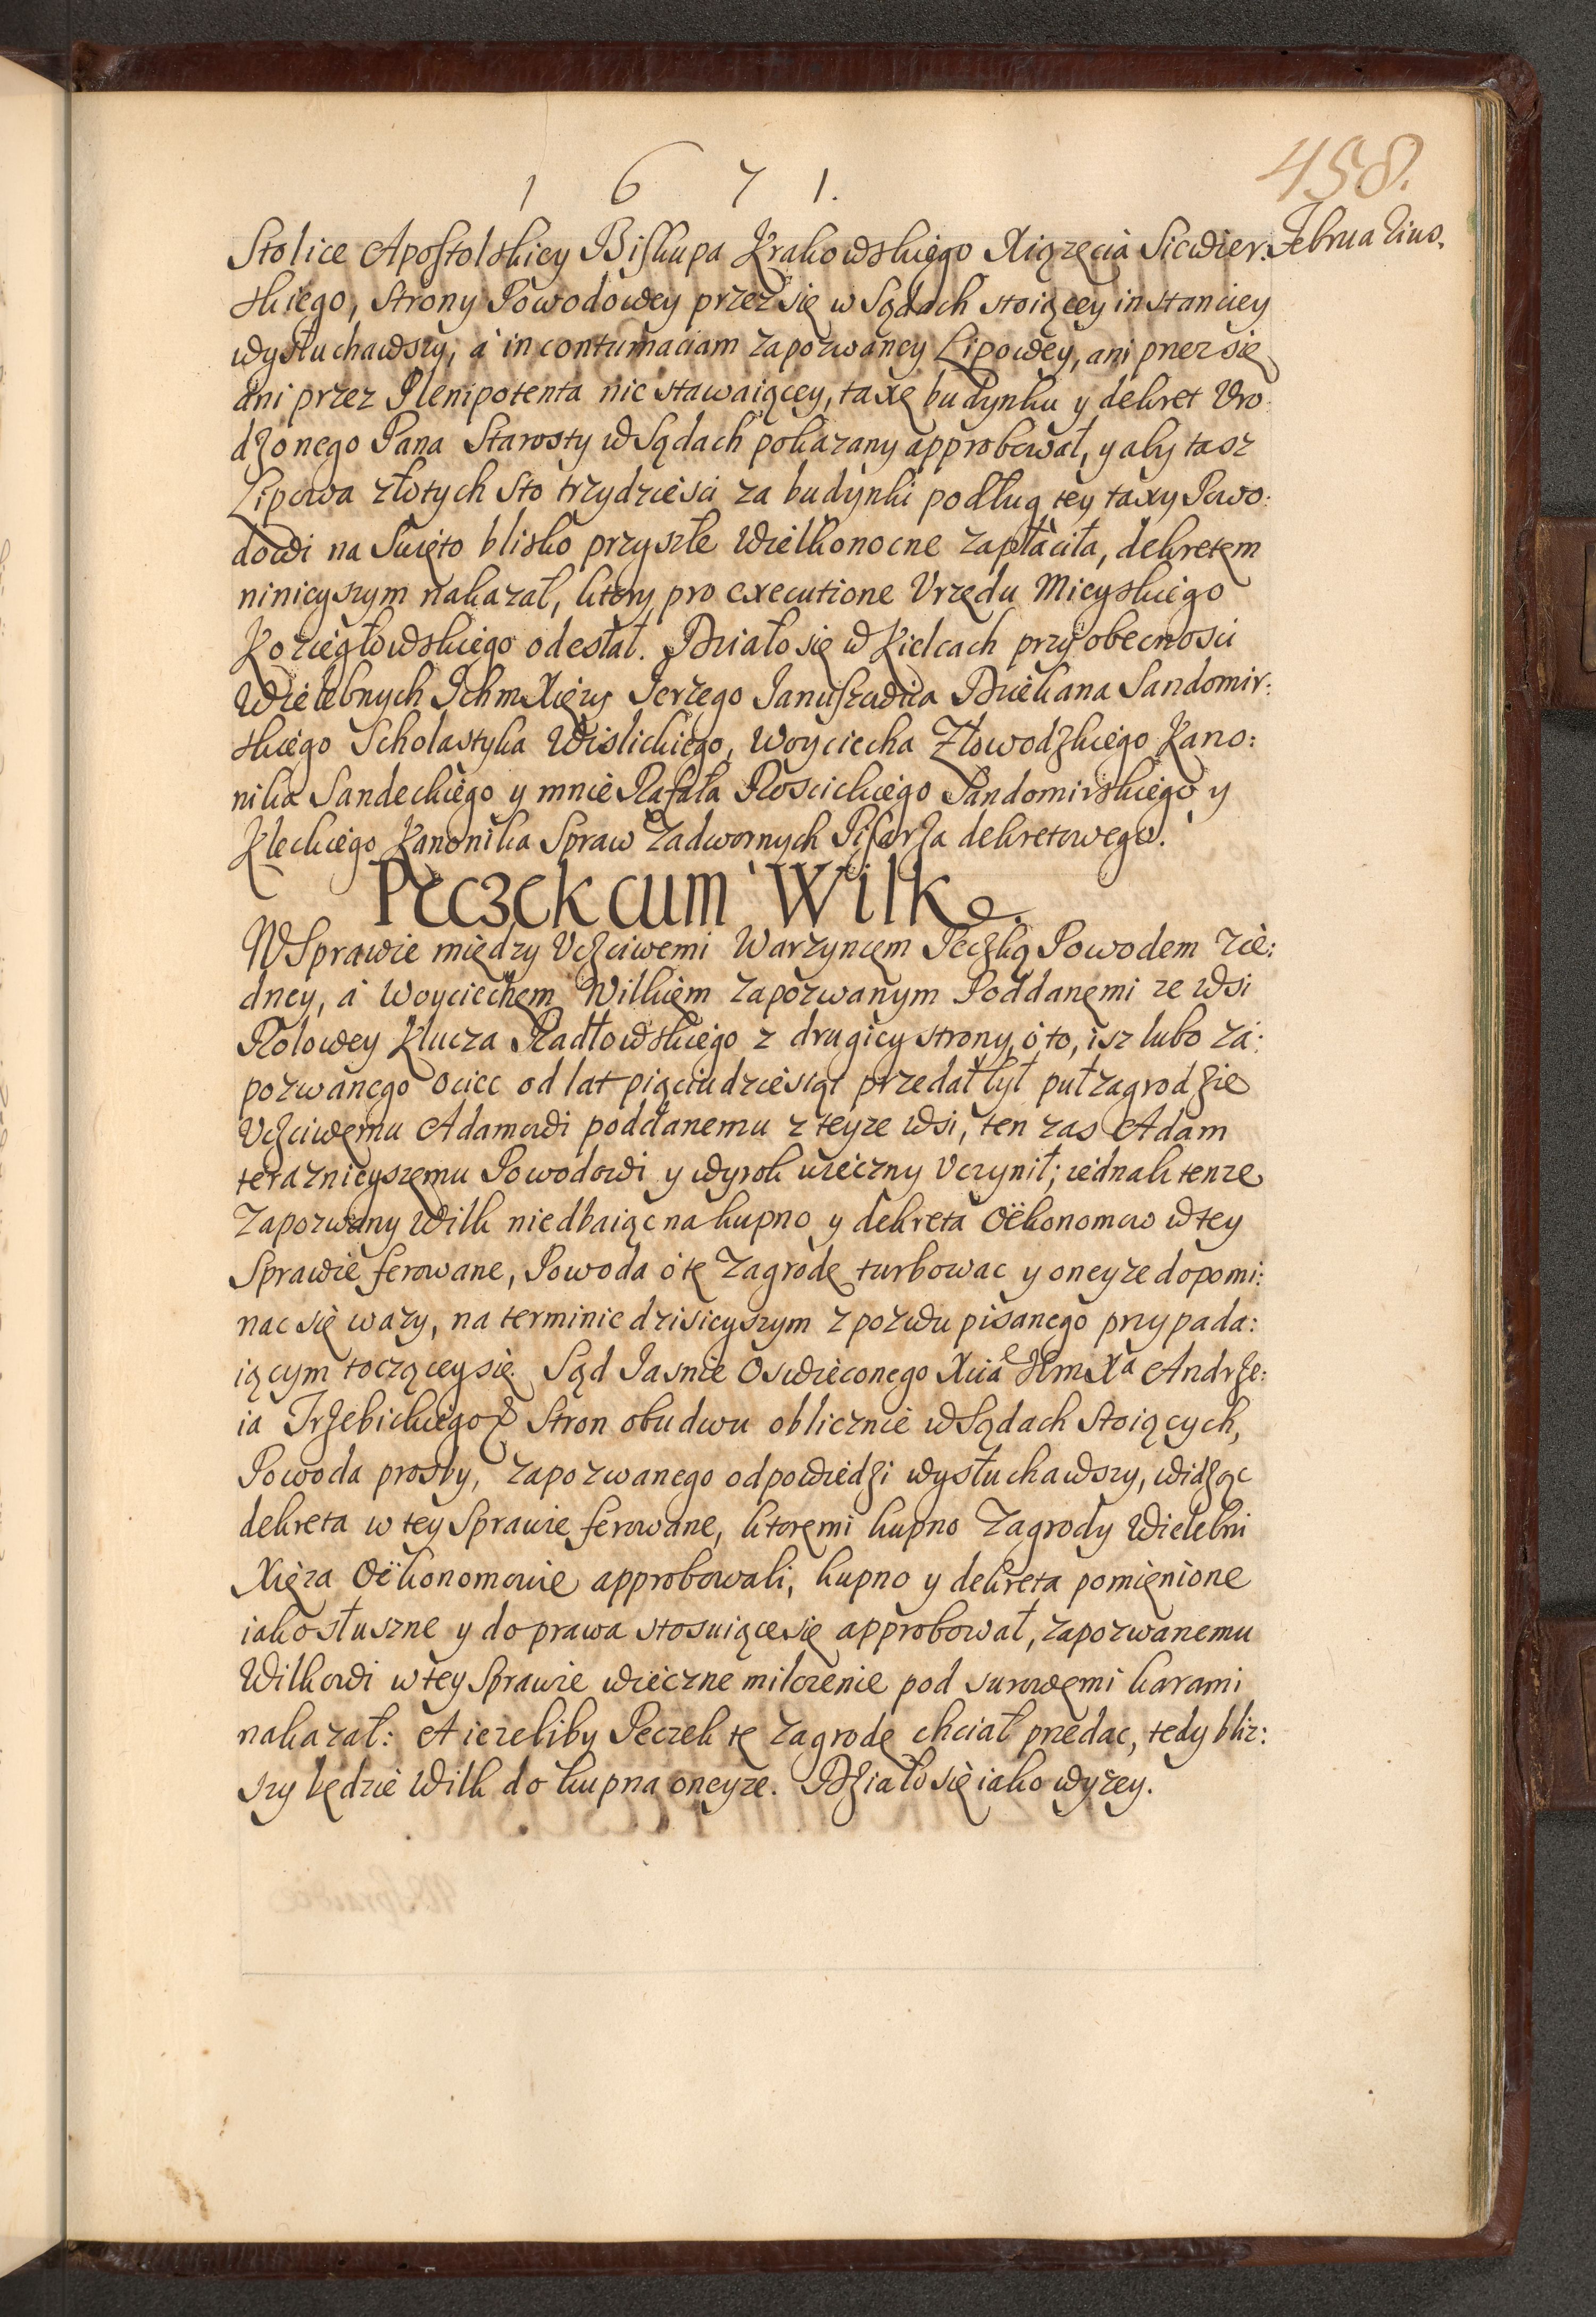 1671.
458.
Februarius.
Stolice Apostolskiey Biskupa Krakowskiego Xiązęcia Siewier:
skiego, Strony Powodowey przez się w Sądach stoiącey instanciey
wysłuchawszy, a in contumaciam zapozwaney Lipowey, ani przez się
ani przez Plenipotenta nie stawaiącey, taxę budynku y dekret Vro:
dzonego Pana Starosty w Sądach pokazany approbował, y aby tasz
Lipowa złotych sto trzydzieści za budynki podług tey taxy Powo:
dowi na Swięto blisko przyszłe Wielkonocne zapłaciła, dekretem
ninieyszym nakazał, ktory pro executione Vrzędu Mieyskiego
Koziegłowskiego odesłał. Działo się w Kielcach przy obecnosci
Wielebnych Ichm Xięży Ierzego Ianuszewica Dziekana Sandomir:
skiego Scholastyka Wislickiego, Woyciecha Złowodzkiego Kano:
nika Sandeckiego y mnie Rafała Roscickiego Sandomirskiego y
Kleckiego Kanonika Spraw Zadwornych Pisarza dekretowego.
Pęczek cum Wilke.
W Sprawie między Vczciwemi Warzyncem Peczką Powodem z ie:
dney, a Woyciechem Wilkiem Zapozwanym Poddanemi ze wsi
Rolowey Klucza Radłowskiego z drugiey strony, o to, isz lubo Za:
pozwanego ociec od lat pięciudziesiąt przedał był puł zagrodzie
Vczciwemu Adamowi poddanemu z teyze wsi, ten zas Adam
teraznieyszemu Powodowi y wyrok wieczny Vczynił; iednak tenze
Zapozwany Wilk niedbaiąc na kupno y dekreta Oëkonomow w tey
Sprawie ferowane, Powoda o tę Zagrodę turbowac y oneyze dopomi:
nac się wazy, na terminie dzisieyszym z pozwu pisanego przypada:
iącym toczącey się. Sąd Iasnie Oswieconego Xcia Ie Hm Xa Andrze:
ia Trzebickiego & Stron obudwu oblicznie w Sądach Stoiących,
Powoda prosby, zapozwanego odpowiedzi wysłuchawszy, widząc
dekreta w tey Sprawie ferowane, ktoremi kupno Zagrody Wielebni
Xięza Oëkonomowie approbowali, kupno y dekreta pomienione
iako słuszne y do prawa stosuiące się approbował, zapozwanemu
Wilkowi w tey Sprawie wieczne milczenie pod surowemi karami
nakazał: A iezeliby Peczek tę Zagrodę chciał przedac, tedy bliz:
szy będzie Wilk do kupna oneyze. Działo się iako wyzey.